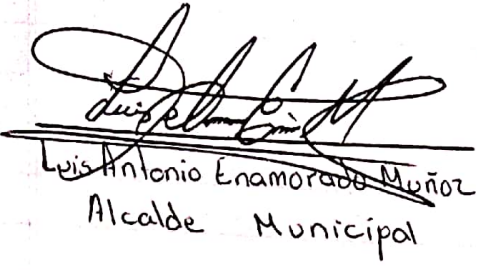 Luis Antonio Enamorado Muñoz
Alcalde Municipal